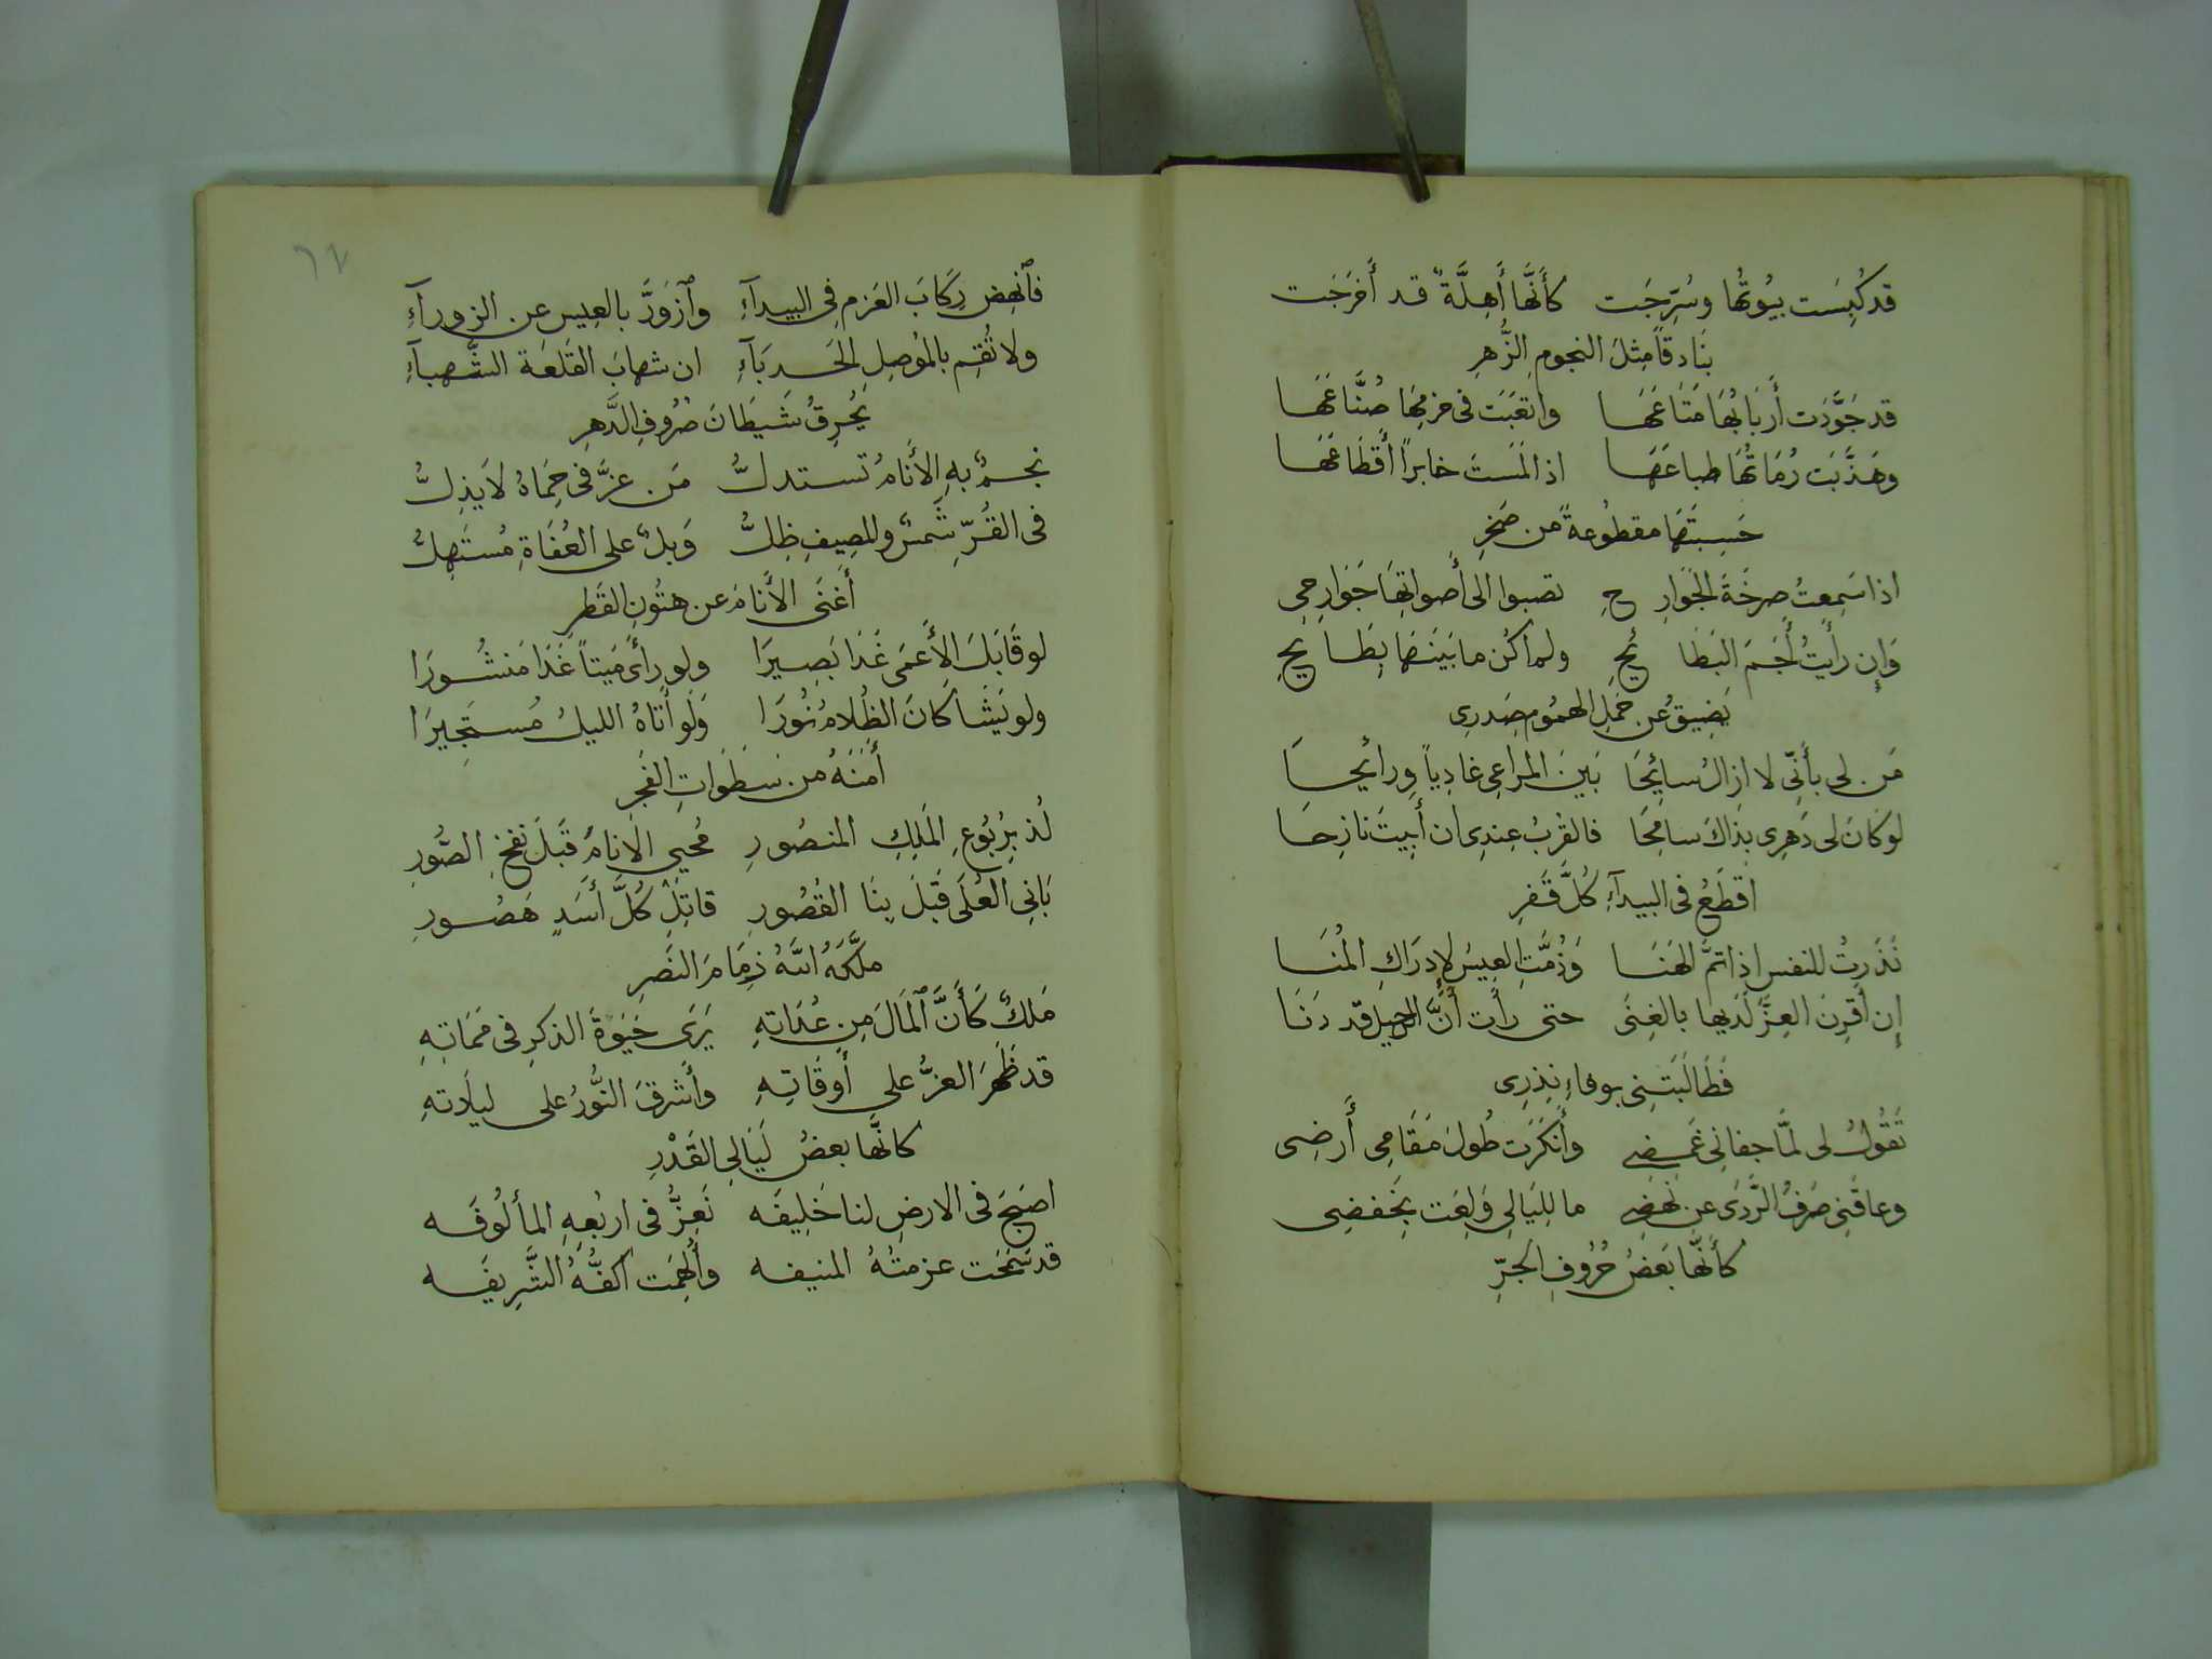 قد كُبِسَت بيُوتُها وسُرِّجَت كأَنَّها أَهِلَّةٌ قد أَخرَجَت
بَنادقاً مِثلَ النجومِ الزُّهرِ
قد جَوَّدَت أَربَابُهَا مَتَاعَهَا واتعَبَت فى حزمِهَا صُنَّاعَهَا
وهَذَّبَت رُمَاتُهَا طباعَهَا اذا لمَستَ خابراً أَقطَاعَهَا
حَسِبتَهَا مقطُوعةً من صَخرِ
اذا سَمِعتُ صرخَةَ الجَوَارِحِ تصبوا الى أَصواتِهَا جَوَارِحِى
وَإِن رأَيتُ أَجَمَ البَطَائحِ ولم اكُن ما بَينَهَا بِطَائحِ
يَضِيقُ عن حَملِ الهمُومِ صَدرِى
مَن لى بأَنّى لا ازالُ سائِحَا بَينَ المراعِى غادِياً ورائحَا
لو كانَ لى دَهرِى بذَاكَ سامحَا فالقربُ عِندِى ان أَبِيتَ نازحَا
اقطَعُ فى البيدآءِ كُلَّ قَفرِ
نَذَرتُ للنفسِ اذا تمَّ الهَنَا وَزُمَّتِ العِيسُ لإِدرَاكِ المُنَا
إِن أَقرِنَ العِزَّ لَدَيها بالغِنَى حتى رأَت أَنَّ الرحيلَ قد دَنَا
فَطَالَبَتنِى بوفاءِ نَذرِى
تَقُولُ لى لمّا جفانِى غَمضِى وأَنكَرَت طُولَ مَقَامِى أَرضِى
وعاقَنِى صَرفُ الرَّدَى عن نَهضِى ما لِلَيَالِى وَلِعَت بخَفضِى
كأَنَّها بَعضُ حُرُوفِ الجرِّ
٦٧
فٱنهِض رِكَابَ العَزمِ فى البيدآءِ وٱزوَرَّ بالعِيسِ عن الزورآءِ
ولا تُقِم بالمَوصِلِ الحَدبَآءِ ان شهابَ القَلعَة الشَّهباءِ
يُحرِقُ شَيطَانَ صُرُوفِ الدَّهرِ
نجمٌ بهِ الأَنَامُ تستدلُّ مَن عزَّ فى حِمَاهُ لا يَذِلُّ
فى القُرِّ شَمسٌ والمصِيفِ ظِلُّ وَبلٌ على العُفَاةِ مُستَهِلُّ
أَغنَى الأَنَامَ عن هتُونِ القَطرِ
لو قَابَلَ الأَعمَى غَدَا بَصِيرَا ولو رأَى مَيتاً غَدَا مَنشُورَا
ولو يَشَا كَانَ الظَلامُ نُورَا وَلَو أَتَاهُ الليلُ مُستَجِيرَا
أَمَنَهُ من سَطَوَاتِ الفَجرِ
لُذ بِرُبُوعِ المَلِكِ المنصُورِ مُحيِى الانامِ قَبلَ نفخِ الصُّورِ
بَانِى العُلَى قَبلَ بِنَا القُصُورِ قاتِلِ كُلَّ أَسَدٍ هَصُورِ
ملَّكَهُ اللّهُ زِمَامَ النَصرِ
مَلكٌ كَأَنَّ ٱلمَالَ مِن عُدَاتِهِ يَرَى حَيٰوةَ الذكرِ فى مَمَاتِهِ
قد ظَهَرَ العزُّ على أَوقَاتِهِ وأَشرقَ النُّورُ على ليلَاتهِ
كانَّها بعضُ لَيَالِى القَدْرِ
اصبَحَ فى الارضِ لنا خَلِيفَه نَعِزُّ فى اربُعِهِ المألُوفَه
قد سَمَحَت عزمتُهُ المنيفه وأُلهِمَت اكفُّهُ الشَّرِيفَه